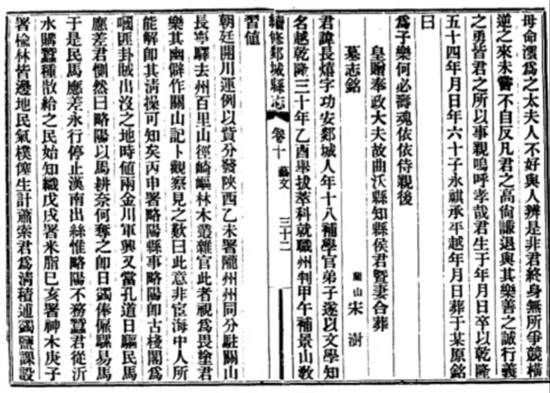 母命濮為之太夫人不好與人辨是非君終身無所爭競橫
逆之來未嘗不自反凡君之高尚謙退與其樂善之誠行義
之勇皆君之所以事親嗚呼孝哉君生于年月日卒以乾隆
五十四年月日年六十子永祺承平越年月日葬于某原銘
曰
為子樂何必壽魂依依侍親後
皇贈奉政大夫故曲沃縣知縣侯君暨妻合葬
墓志銘 蘭山 宋澍
君諱長熺字功安郯城人年十八補學官弟子遂以文學知
名越乾隆三十年乙酉舉拔萃科就職州判甲午補景山教
續修郯城縣志 卷十 藝文 三十二
習値
朝廷開川運例以貲分發陝西乙未署隴州州同分駐關山
長寧驛去州百里山徑崎嶇林木叢雜官此者視為畏塗君
樂其幽僻作關山記卜觀察見之歎曰此意非宦海中人所
能解卽其清操可知矣丙申署略陽縣事略陽卽古棧閣為
嘓匪卦賊出沒之地時値兩金川軍興又當孔道日驅民馬
應差君惻然曰略陽以馬耕奈何奪之卽日蠲俸僱騾易馬
于是民馬應差永行停止漢南出絲惟略陽不務蠶君從沂
水購蠶種散給之民始知織戊戌署米脂己亥署神木庚子
署榆林皆邊地民氣樸生計蕭索君為清積逋蠲鹽課設